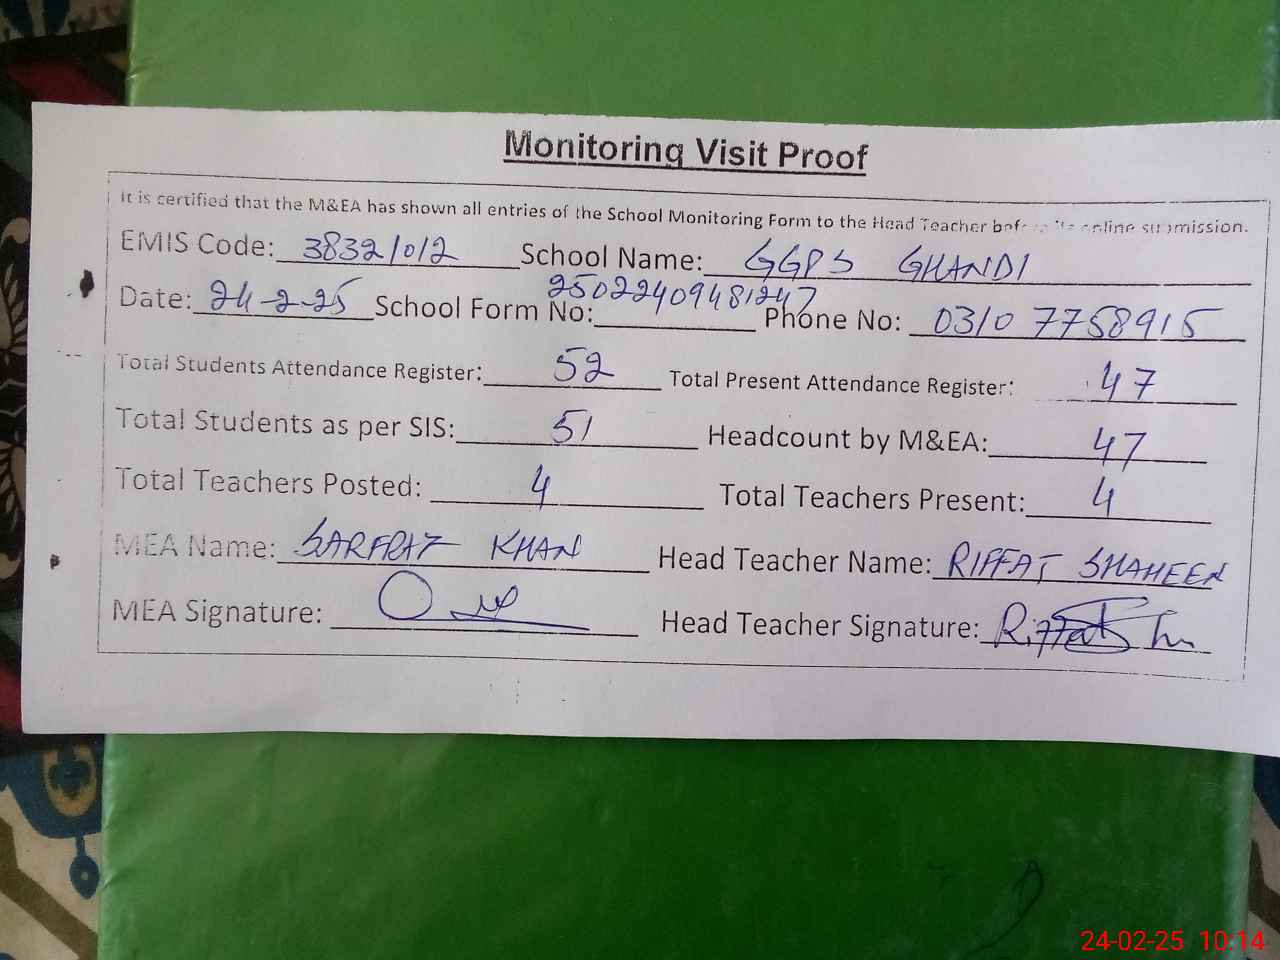 Monitoring Visit Proof
It is certified that the M&EA has shown all entries of the School Monitoring Form to the Head Teacher before its online submission.
EMIS Code: 38321012 School Name: GGPS GHANDI
Date: 24-2-25 School Form No: 25022409481247 Phone No: 0310 7758915
Total Students Attendance Register: 52 Total Present Attendance Register: 47
Total Students as per SIS: 51 Headcount by M&EA: 47
Total Teachers Posted: 4 Total Teachers Present: 4
MEA Name: SARFRAZ KHAN Head Teacher Name: RIFFAT SHAHEEN
MEA Signature: Head Teacher Signature: Riffat
24-02-25 10:14